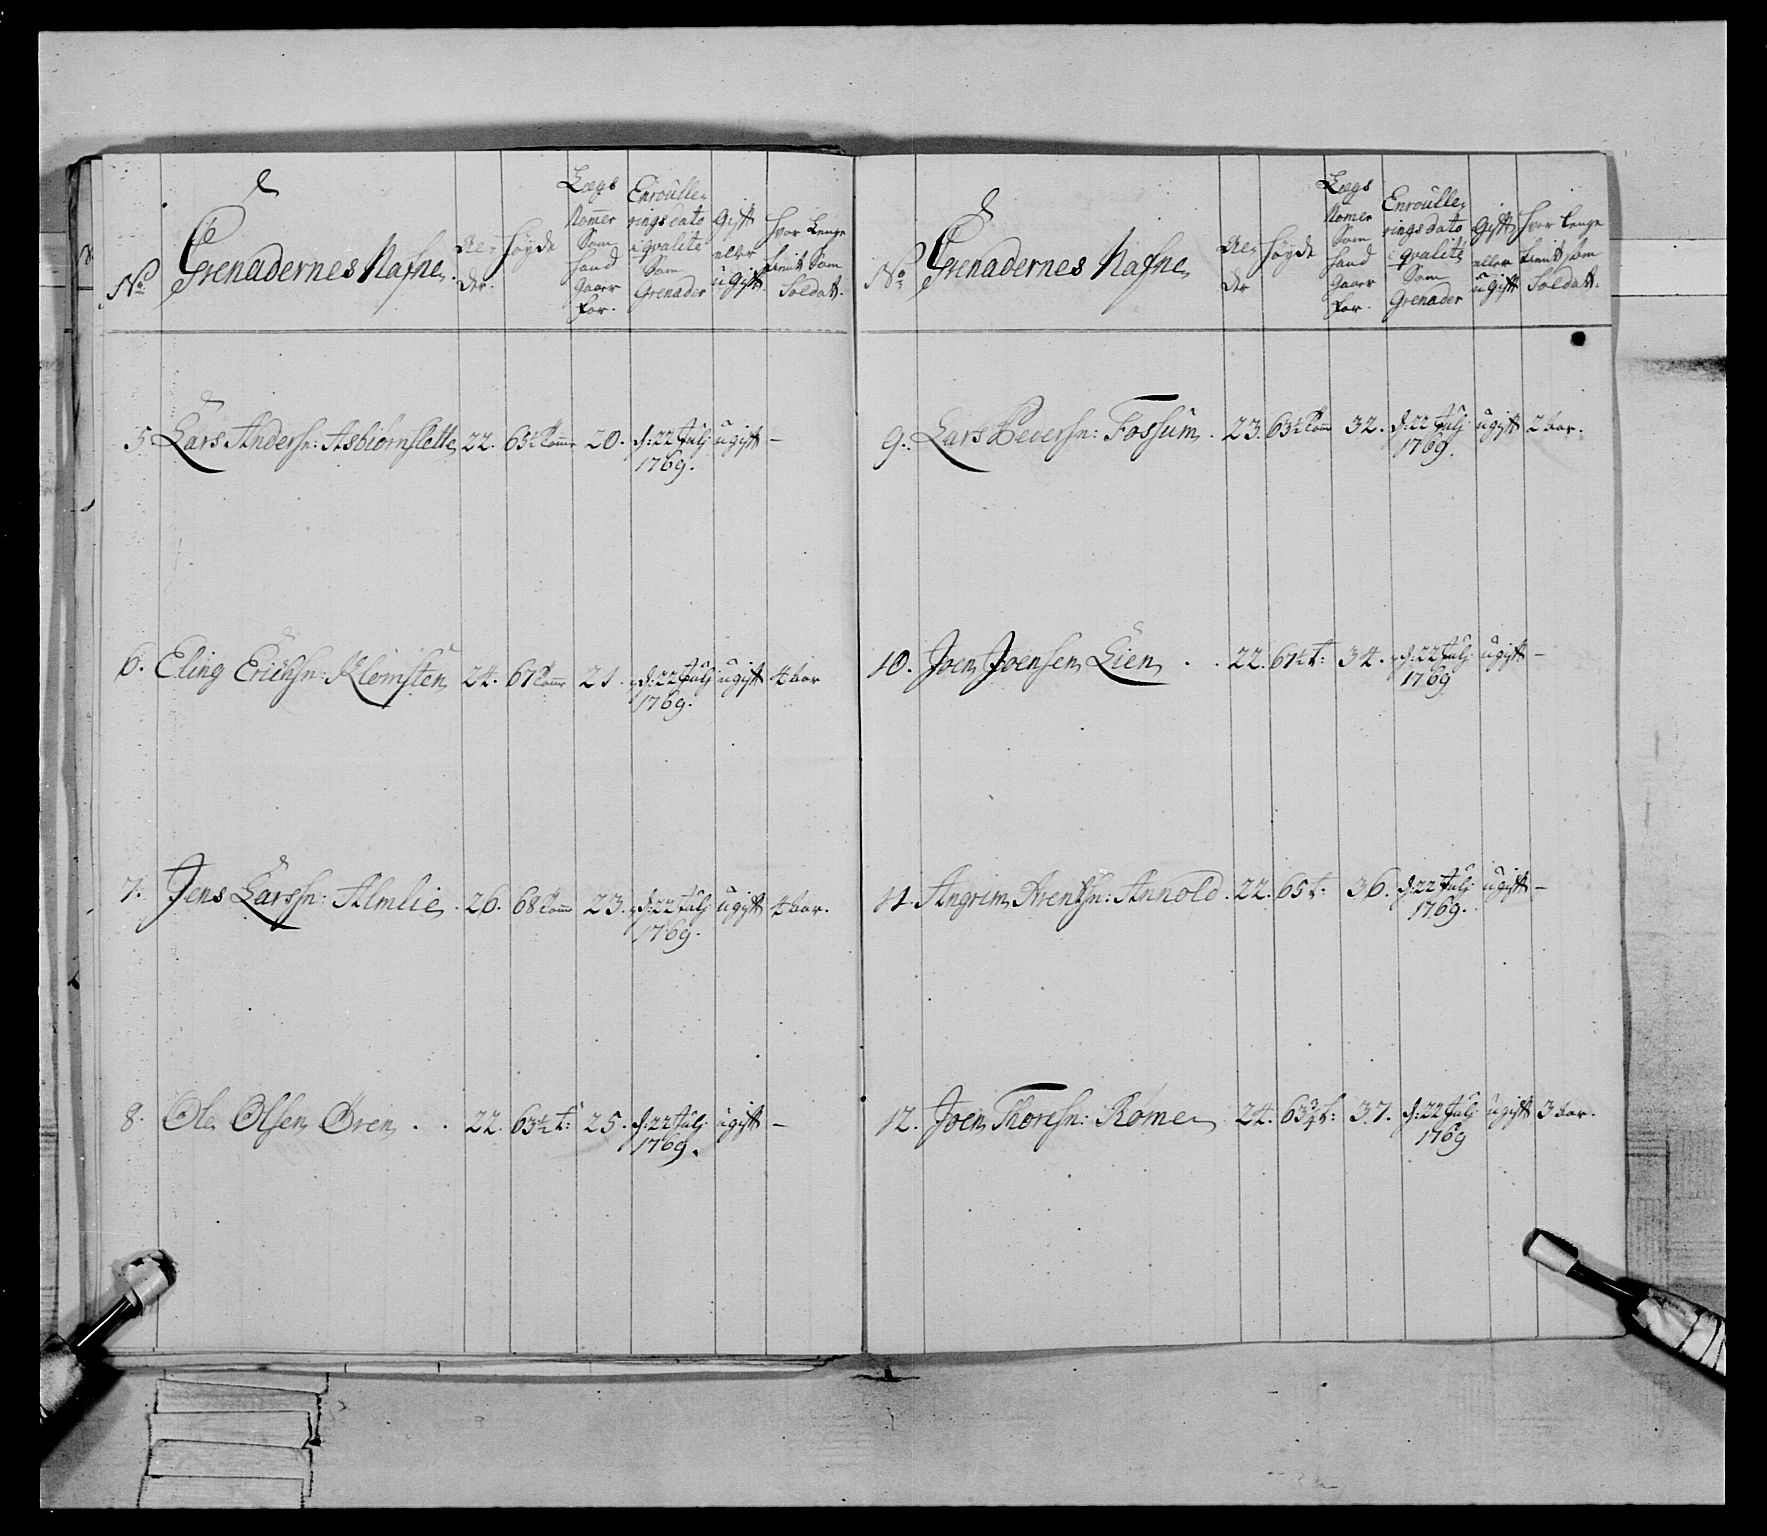 No Grenadernes Nafne. Al- der. Høyde Lægs Nommer Som hand gaaer for. Enroulle- rings dato i qvalite Som Grenader Gift eller ugift. hvor Lenge tient Som Soldatt.
5. Lars Andersn: Asbiørnslette 22. 65½ Tomme 20. d: 22 Julj 1769. ugift —
6. Eling Erichsn: Klomsten 24. 67 Tomme 21. d: 22 Julj 1769. ugift 4 aar
7. Jens Larssn: Almlie. 26. 68 Tomme 23. d: 22 Julj 1769. ugift 4 aar.
8. Ole Olsen Øren . . 22. 63½ t: 25. d: 22 Julj 1769. ugift —
No Grenadernes Nafne Al- der Høyde Lægs Nomer Som hand gaaer for. Enroulle- rings dato i qvalite Som Grenader Gift eller ugift hvor lenge tient som Soldatt.
9. Lars Pedersn: Fossum. 23. 63½ Tomm 32. d: 22 Julj 1769. ugift 2 aar.
10. Joen Joensen Lien . . 22. 67½ t: 34. d: 22 Julj 1769 ugift —
11. Angrim Arentsn: Annold. 22. 65 t: 36. d: 22 Julj 1769. ugift —
12. Joen Thoresn: Rome 24. 63¾ t: 37. d: 22 Julj 1769 ugift 3 aar.